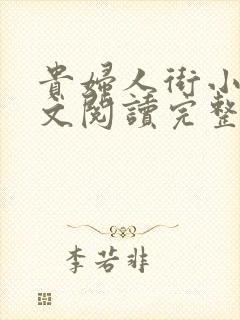 貴婦人街小
文閱讀完整
李若非